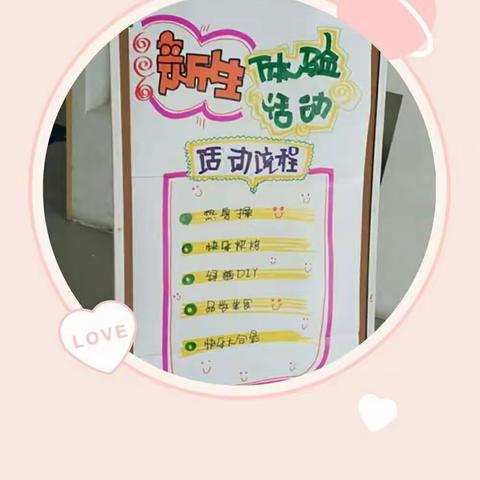 体验
活动
活动流程
热身操
快乐烘焙
DIY
品尝美食
快乐大合影
LOVE